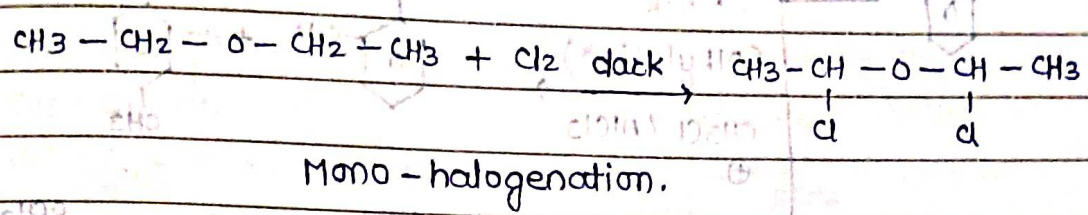 CH3 – CH2 – O – CH2 – CH3 + Cl2 dark → CH3 – CH – O – CH – CH3
Cl Cl
Mono-halogenation.